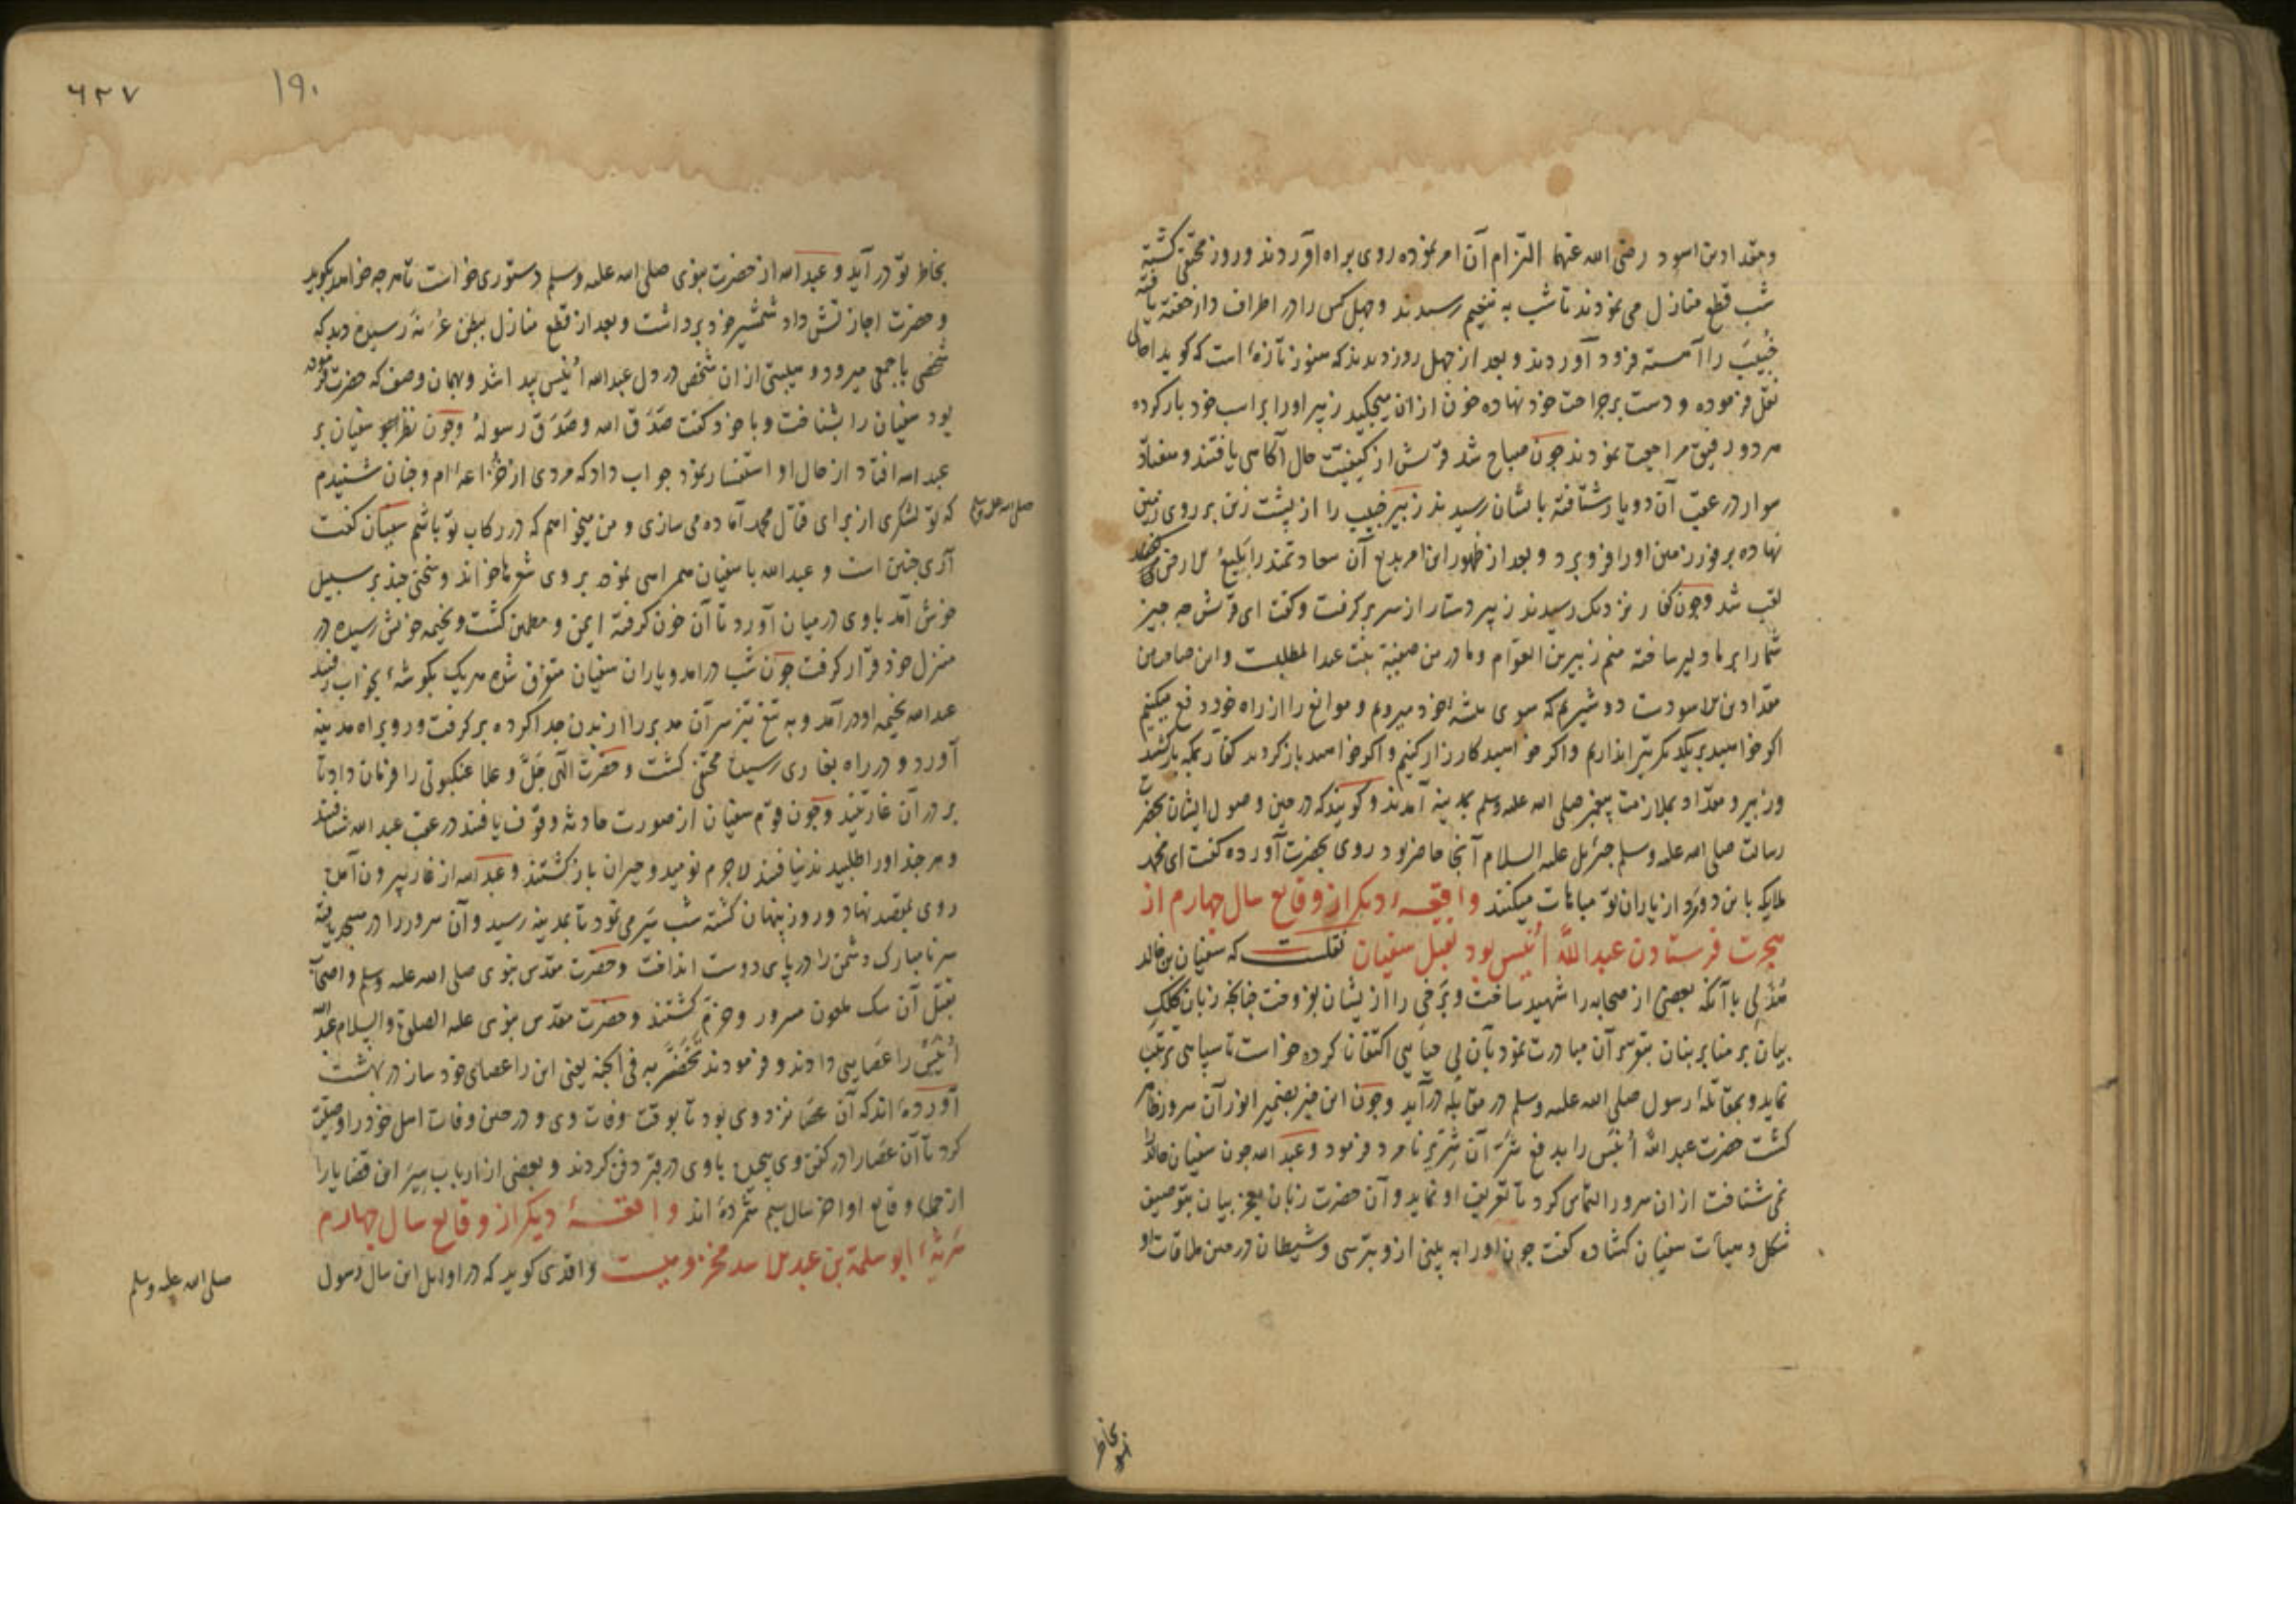 ومقداد بن اسود رضی الله عنهما التزام آن امر نموده روی براه آوردند و روز مختفی کشته
شب قطع منازل می نمودند تا شب به تنعیم رسیدند و چهل کس را در اطراف دار خفته یافته
خُبیب را آهسته فرود آوردند و بعد از چهل روز دیدند که هنوز تازه است که کوید احالی
نقل فرموده و دست بر جراحت خود نهاده خون ازان میچکید زبیر او را بر اسب خود بار کرده
هر دو رفیق مراجعت نمودند جون صباح شد قریش از کیفیت حال آکاهی یافتند و هفتاد
سوار در عقب آن دو یار شتافته بایشان رسیدند زبیر خبیب را از پشت زین بر روی زمین
نهاده بر فور زمین او را فرو برد و بعد از ظهور این امر بدیع آن سعادتمند را بلیع الارض
لقب شد وجون کفار نزدیک رسیدند زبیر دستار از سر بر کرفت وکفت ای قریش چه چیز
شما را بر ما دلیر ساخته منم زبیر بن العوّام و مادر من صفیة بنت عبد المطلبست و این صاحب من
مقداد بن الاسودست دو شیریم که سوی بیشه خود میرویم و موانع را از راه خود دفع میکنیم
اکر خواهید بر یکدیکر تیر اندازیم واکر خواهید کارزار کنیم و اکر خواهید باز کردید کفار بمکه باز کشتند
و زبیر و مقداد بملازمت پیغمبر صلی الله علیه وسلم بمدینه آمدند و کویند که در حین وصول ایشان بحضرت
رسالت صلی الله علیه وسلم جبرئیل علیه السلام آنجا حاضر بود روی بحضرت آورده کفت ای محمد
ملایکه باین دو مرد از یاران تو مباهات میکنند واقعهٔ دیکر از وقایع سال چهارم از
هجرت فرستادن عبد الله اُنَیس بود بقتل سفیان نقلست که سفیان بن خالد
هُذَلی با آنکه بعضی از صحابه را شهید ساخت و برخی را از ایشان بفروخت چنانکه زبان کلک
بیان بر منابر بنان بتوسر آن مبادرت نمود بآن بی حیایی اکتفا نا کرده خواست تا سپاهی ترتیب
نماید و بمقاتله رسول صلی الله علیه وسلم در مقابله درآید وجون این خبر بضمیر انور آن سرور ظاهر
کشت حضرت عبد الله اُنیس را بدفع شرّ آن شریر نامزد فرمود و عبد الله جون سفیان خالد را
نمی شناخت ازان سرور التماس کرد تا تعریف او نماید و آن حضرت زبان معجز بیان بتوصیف
شکل و هیأت سفیان کشاده کفت جون او را به بینی ازو بترسی و شیطان در حین ملاقات او
بخاطر تو
٦٢٧
١٩٠
بخاطر تو در آید و عبد الله از حضرت نبوی صلی الله علیه وسلم دستوری خواست تا هر چه خواهد بکوید
و حضرت اجازتش داد شمشیر خود برداشت و بعد از قطع منازل ببطن عُرَنَه رسیده دید که
شخصی با جمعی میرود و هیبتی ازان شخص در دل عبد الله اُنَیس پیدا شد و بهمان وصف که حضرت فرموده
بود سفیان را بشناخت و با خود کفت صَدَقَ الله وصَدَقَ رسولهُ وجون نظر سفیان بر
عبد الله افتاد از حال او استفسار نمود جواب داد که مردی از خُزاعه ام وجنان شنیدم
که تو لشکری از برای قتال محمد آماده می سازی و من میخواهم که در رکاب تو باشم سفیان کفت
صلی الله علیه وسلم
آری چنین است و عبد الله با سفیان همراهی نموده بر وی شعرها خواند و سخنی چند بر سبیل
خوش آمد با وی در میان آورد تا آن خون کرفته ایمن و مطمئن کشت و بخیمه خویش رسیده در
منزل خود قرار کرفت جون شب درآمد و یاران سفیان متفرق شده هر یک بکوشهٔ بخواب رفتند
عبد الله بخیمه او درآمد و به تیغ تیز سر آن مدبر را از بدن جدا کرده بر کرفت و رو براه مدینه
آورد و در راه بغاری رسیده مختفی کشت و حضرت الهی جَلَّ وعلا عنکبوتی را فرمان داد تا
بر در آن غار تنید وجون قوم سفیان از صورت حادثه وقوف یافتند در عقب عبد الله شتافتند
و هر چند او را طلبیدند نیافتند لاجرم نومید و حیران باز کشتند و عبد الله از غار بیرون آمده
روی بمقصد نهاد و روز پنهان کشته شب سَیر می نمود تا بمدینه رسید و آن سرور را در مسجد یافته
سر نا مبارک دشمن را در پای دوست انداخت و حضرت مقدّس نبوی صلی الله علیه وسلم و اصحاب
بقتل آن سک ملعون مسرور و خرّم کشتند و حضرت مقدّس نبوی علیه الصلوة والسلام عبد الله
اُنَیس را عصایی دادند و فرمودند تَخَصَّر به فی الجنه یعنی این را عصای خود ساز در بهشت
آورده اند که آن عصا نزد وی بود تا بوقت وفات وی و در حین وفات اهل خود را وصیت
کرد تا آن عصا را در کفن وی پیچیده با وی در قبر دفن کردند و بعضی از ارباب سِیَر این قضایا را
از جملهٔ وقایع اواخر سال سیم شمرده اند واقعهٔ دیکر از وقایع سال چهارم
سَریّهٔ ابو سلمة بن عبد الاسد مخزومیست واقدی کوید که در اوایل این سال رسول
صلی الله علیه وسلم